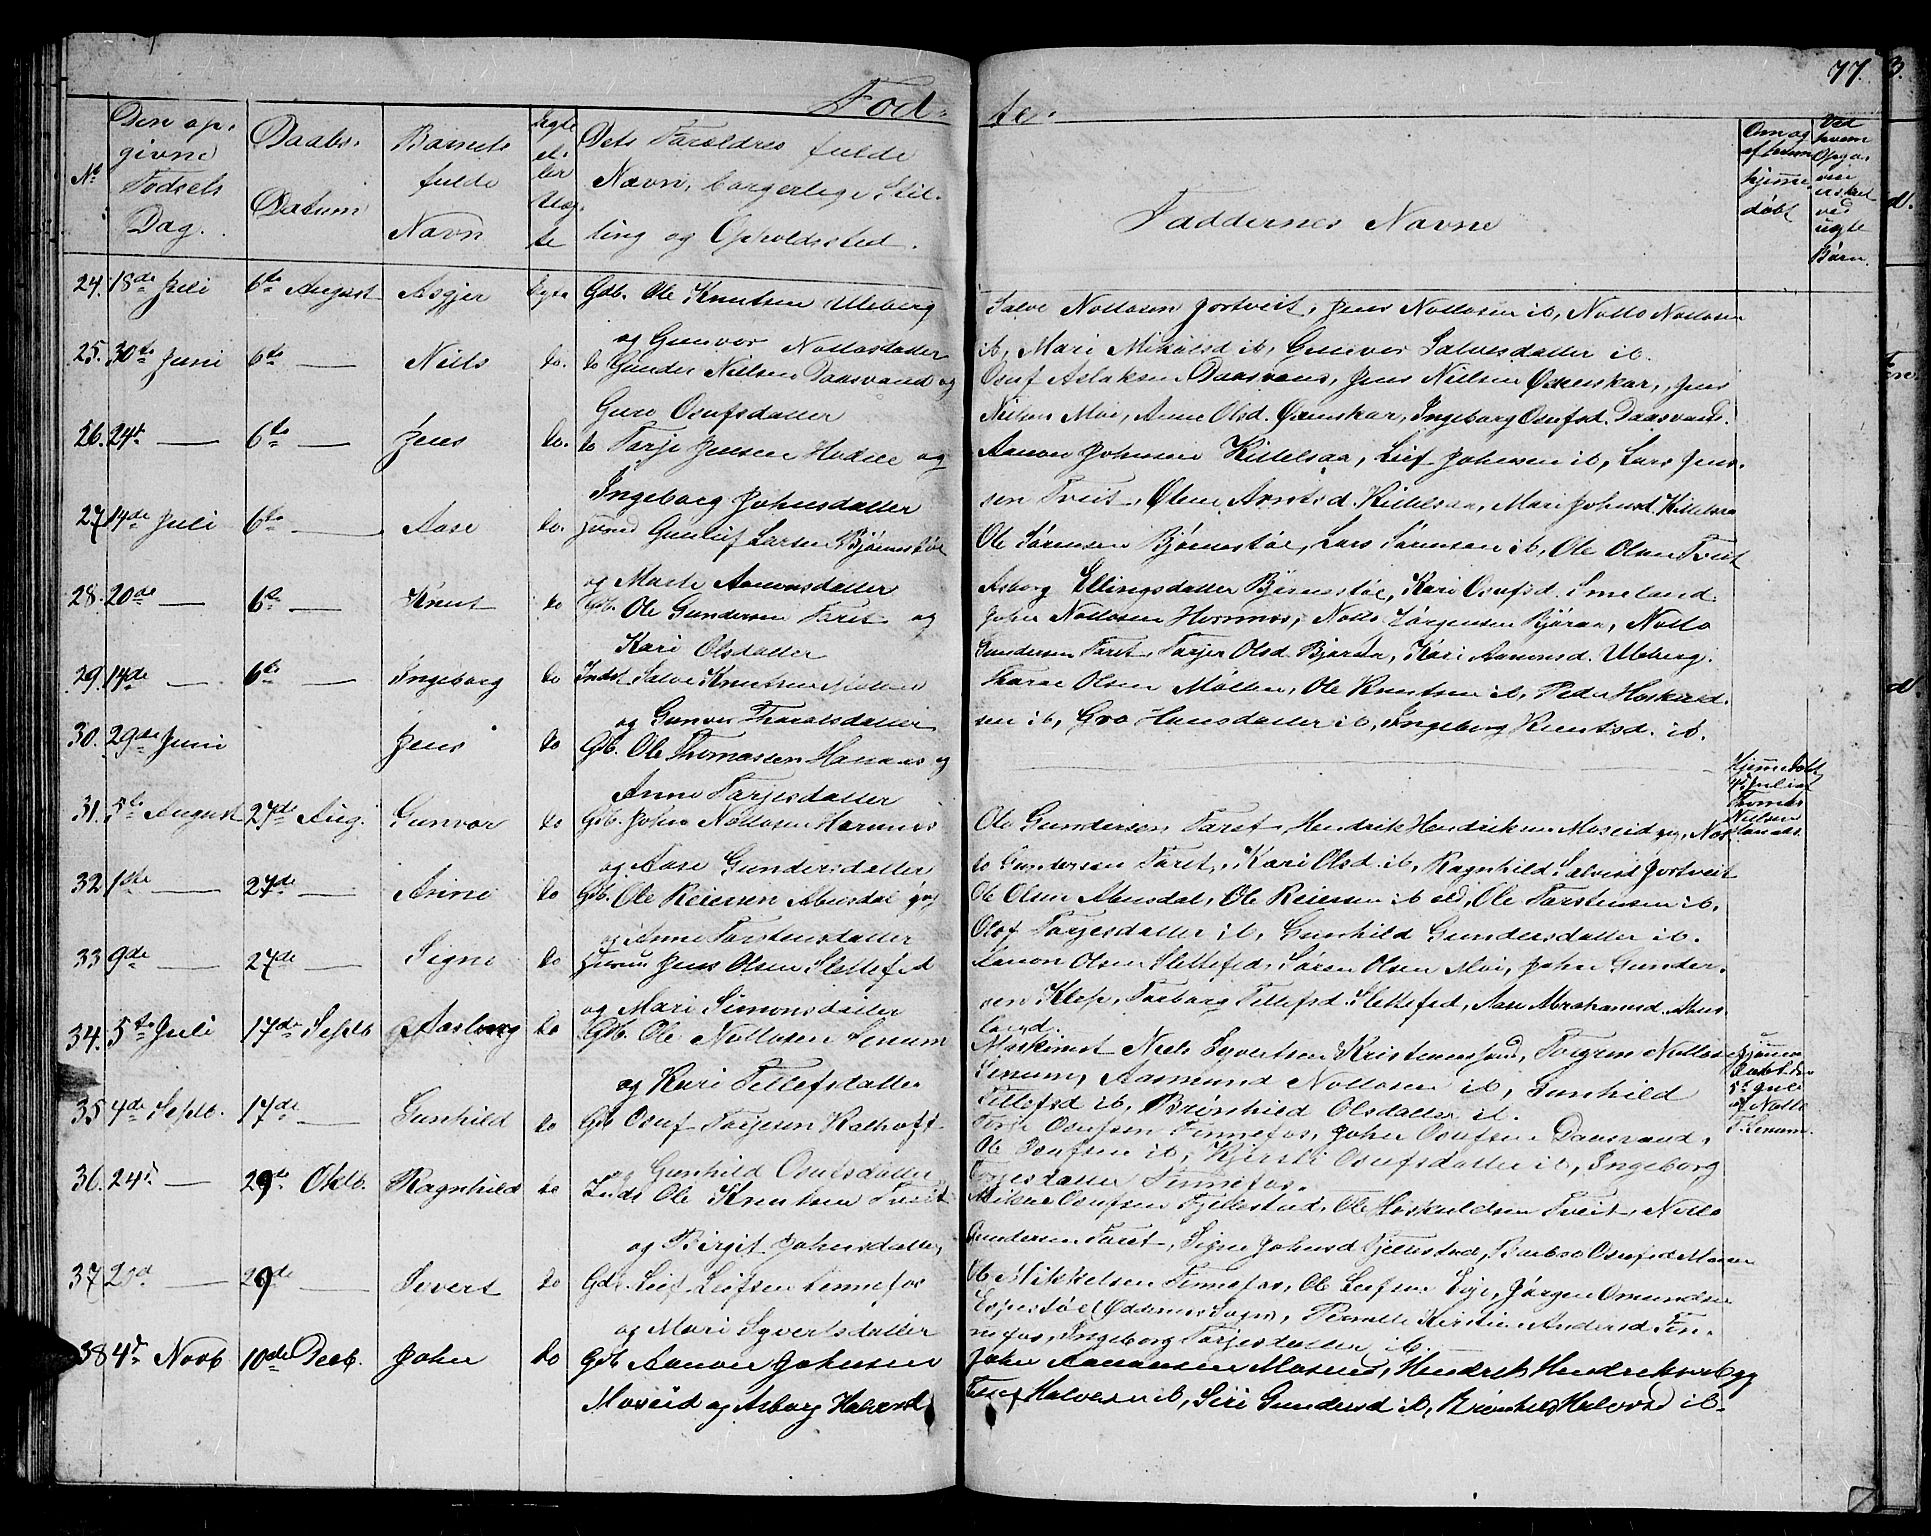 Fød- te.
77.
No
Den op-
givne
Fødsels
Dag.
Daabs-
Datum
Barnets
fulde
Navn
Ægte
el-
ler
Uæg-
te
Dets Foreldres fulde
Navn, borgerlige Stil-
ling og Opholdssted.
Faddernes Navne
Om og
af hvem
hjemme-
døbt
Ved
hvem
Opga-
ven
ved
uægte
Børn.
24. 18de Juli 6te August Asgjer Ægte Gdb. Ole Knutsen Uleberg
og Gunvor Nottosdatter
Salve Nottosen Jortveit, Jens Nottosen ib, Notto Nottosen
ib, Mari Mikalsd ib, Gunvor Salvesdatter ib.
25. 30te Juni 6te — Niels do. do Gunder Nielsen Daasvand og
Guro Osufsdatter
Osuf Aslaksen Daasvand, Jens Nielsen Oxenskar, Jens
Nielsen Moi, Anne Olsd. Oxenskar, Ingeborg Osufsd. Daasvand.
26. 24de — 6te — Jens do. do Tarje Jensen Hodne og
Ingeborg Johnsdatter
Aanon Johnsen Kittelsaa, Leif Johnsen ib, Lars Jens-
sen Tveit, Olene Arntsd. Kittelsaa, Mari Johnsd. Kittelsaa
27. 14de Juli 6te — Aase do. Gunleif Larsen Bjørnestøl
og Marte Aanonsdatter
Ole Sørensen Bjørnestøl, Lars Sørensen ib, Ole Olsen Tveit
Asborg Ellingsdatter Bjørnestøl, Kari Osufsd. Smeland.
28. 20de — 6te — Knut do Gdb. Ole Gundersen Faret og
Kari Olsdatter
John Nottosen Hornnes, Notto Jørgensen Bjøraa, Notto
Gundersen Faret, Tarjer Olsd Bjøraa, Kari Aanonsd. Uleberg.
29. 14de — 6te — Ingeborg do Indst Salve Knutsen Mollen
og Gunvor Tharalsdatter
Tharal Olsen Mollen, Ole Knutsen ib, Peder Hoskuld-
sen ib, Gro Hansdatter ib, Ingeborg Knutsd. ib.
30. 29de Juni Jens do Gdb. Ole Thomassen Hanaas og
Anne Tarjesdatter
Hjemmedøbt
Juli af
Thomas
Nielsen
Hanaas.
31. 5te August 27de Aug. Gunvor do Gdb. John Nottosen Hornnes
og Aase Gundersdatter
Ole Gundersen Faret, Hendrik Hendriksen Moseid yg, Not-
to Gundersen Faret, Kari Olsd ib, Ragnhild Salvesd Jortveit
32 1ste — 27de — Anne do Gdb. Ole Reiersen Abusdal yg
og Anne Torstensdatter
Ole Olsen Abusdal, Ole Reiersen ib eld, Ole Torstensen ib,
Olof Tarjesdatter ib, Gunhild Gundersdatter ib.
33 9de — 27de — Signe do Jens Olsen Slettefed
og Mari Simonsdatter
Aanon Olsen Slettefed, Søren Olsen Moi, John Gunder-
sen Klep, Torborg Tellefsd Slettefed, Aase Abrahamsd. Mus-
land.
34. 5te Juli 17de Septb Aasborg do Gdb. Ole Nottosen Senum
og Kari Tellefsdatter
Maskinist Niels Syvertsen Kristianssand, Torgrim Nottosen
Senum, Aasmund Nottosen ib, Gunhild
Tellefsd ib, Brønhild Olsdatter ib.
Hjemme-
døbt den
5te Juli
af Notto
T. Senum.
35 4de Septb. 17de — Gunhild do Gdb Osuf Tarjesen Kalhoft
og Gunhild Osulsdatter
Tarje Osufsen Fennefos, John Osufsen Daasvand,
Ole Osufsen ib, Kjersti Osufsdatter ib, Ingeborg
Torjesdatter Fennefos.
36. 24de — 29de Oktb. Ragnhild do Inds Ole Knutsen Tveit
og Birgit Johnsdatter
Mikal Osufsen Fjellestad, Ole Hoskuldsen Tveit, Notto
Gundersen Faret, Signe Johnsd Fjellestad, Barbro Osufsd Moseid
37 23d — 29de — Syvert do Gdb. Leif Leifsen Fennefos
og Mari Syvertsdatter
Ole Mikkelsen Fennefos, Ole Leifsen Eije, Jørgen Omundsen
Espestøl (Oddernes Sogn), Pernille Kirstine Andersd Fen-
nefos, Ingeborg Tarjesdatter ib.
38 4de Novb. 10de Decb. John do Gdb Aanon Johnsen
Moseid og Asborg Halvorsd.
John Aanonsen Moseid, Hendrik Hendriksen ib yg
Tellef Halvorsen ib, Siri Gundersd ib, Brønhild Halvorsd ib.